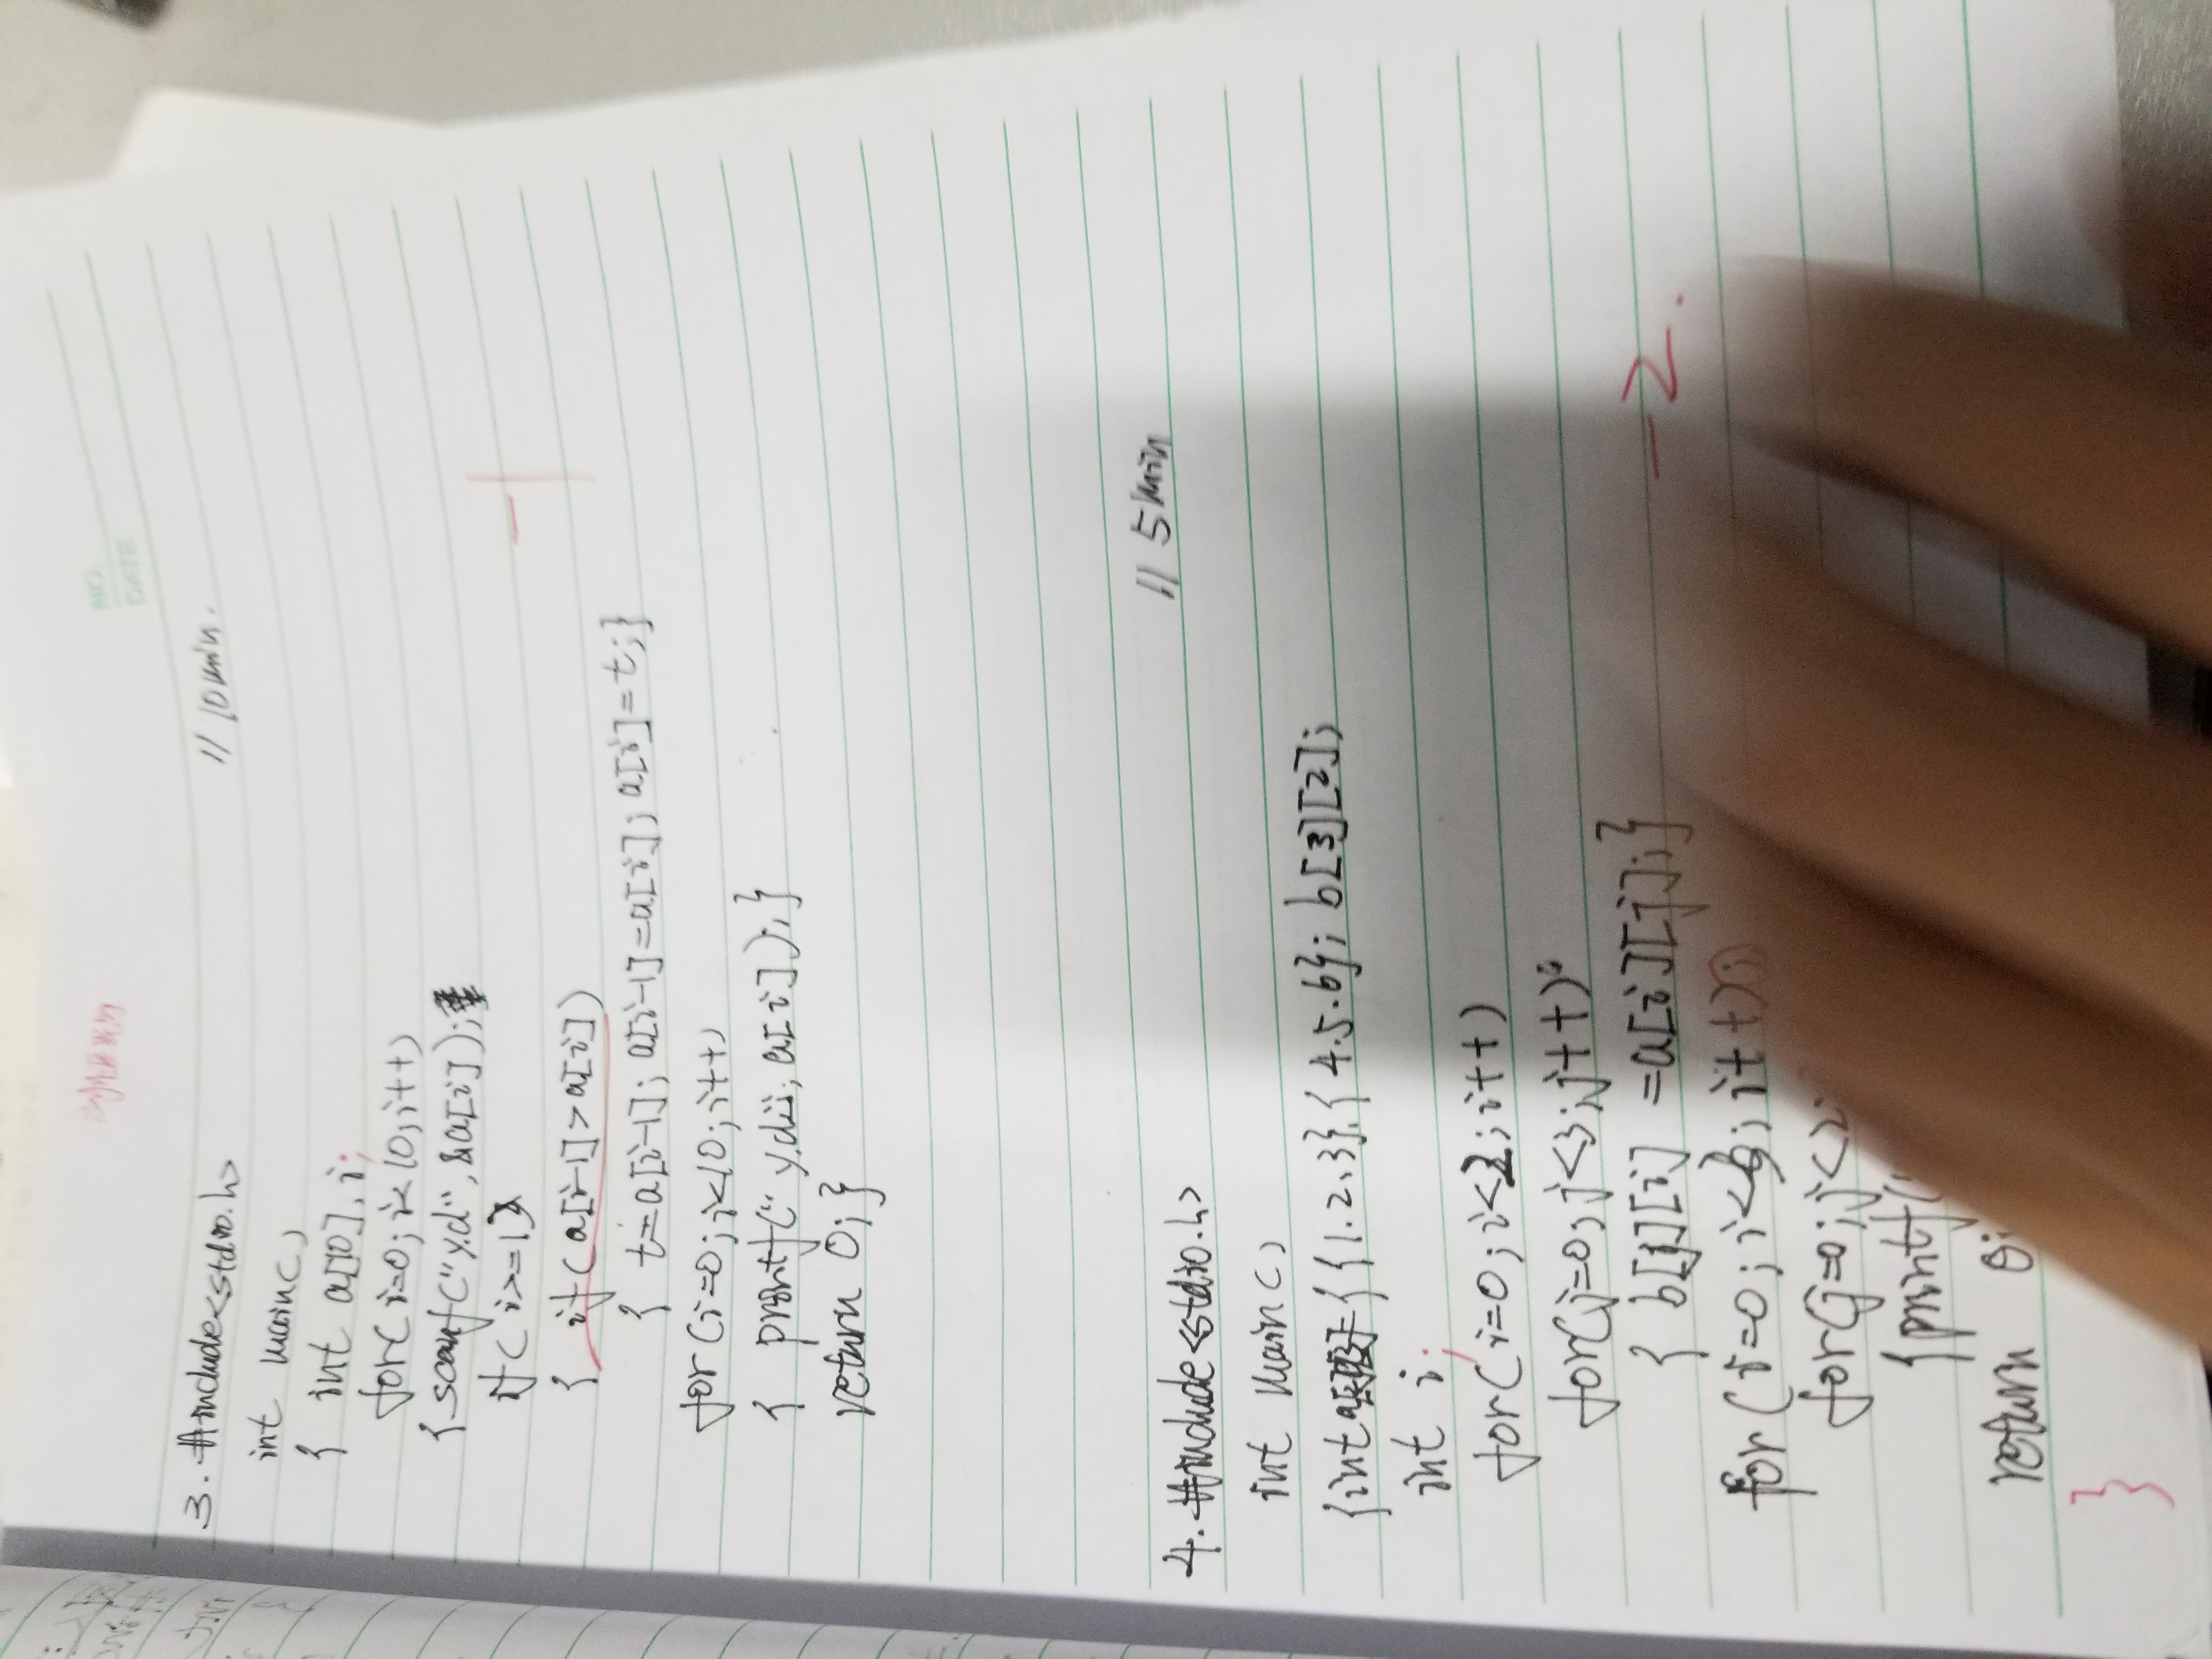 NO.
DATE
3. #include<stdio.h> // 10min.
int main()
{ int a[10], i;
for(i=0; i<10; i++)
{scanf("%d", &a[i]);
if( i>=1)
{ if( a[i-1]>a[i])
{ t=a[i-1]; a[i-1]=a[i]; a[i]=t;}
-1
for (i=0; i<10; i++)
{ printf("%d", a[i]);}
return 0; }
4. #include<stdio.h> // 5min
int main()
={{1.2.3},{4.5.6}; b[3][2];
int i;
for(i=0; i<2; i++)
for(j=0; j<3; j++)
{ b[j][i] =a[i][j];}
-2.
for (i=0; i<3; i++)
for(j=0; j<2;
{printf("
return 0;
}